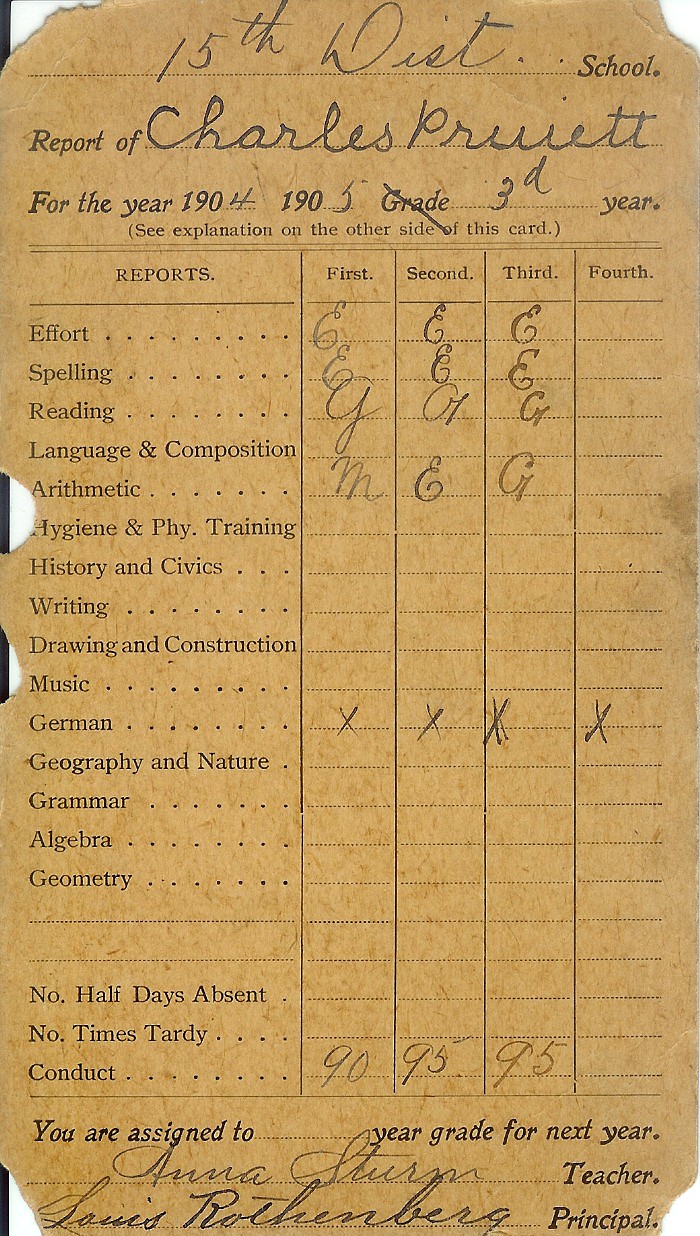 15th Dist. School.
Report of Charles Pruiett
For the year 1904 1905 Grade 3d year.
(See explanation on the other side of this card.)
REPORTS. First. Second. Third. Fourth.
Effort . . . . . . . . . E E E
Spelling . . . . . . . . E E E
Reading . . . . . . . . G G G
Language & Composition
Arithmetic . . . . . . . M E G
Hygiene & Phy. Training
History and Civics . . .
Writing . . . . . . . .
Drawing and Construction
Music . . . . . . . . .
German . . . . . . . . X X X X
Geography and Nature .
Grammar . . . . . . .
Algebra . . . . . . . .
Geometry . . . . . . .
No. Half Days Absent .
No. Times Tardy . . . .
Conduct . . . . . . . . 90 95 95
You are assigned to year grade for next year.
Anna Sturm Teacher.
Louis Rothenberg Principal.